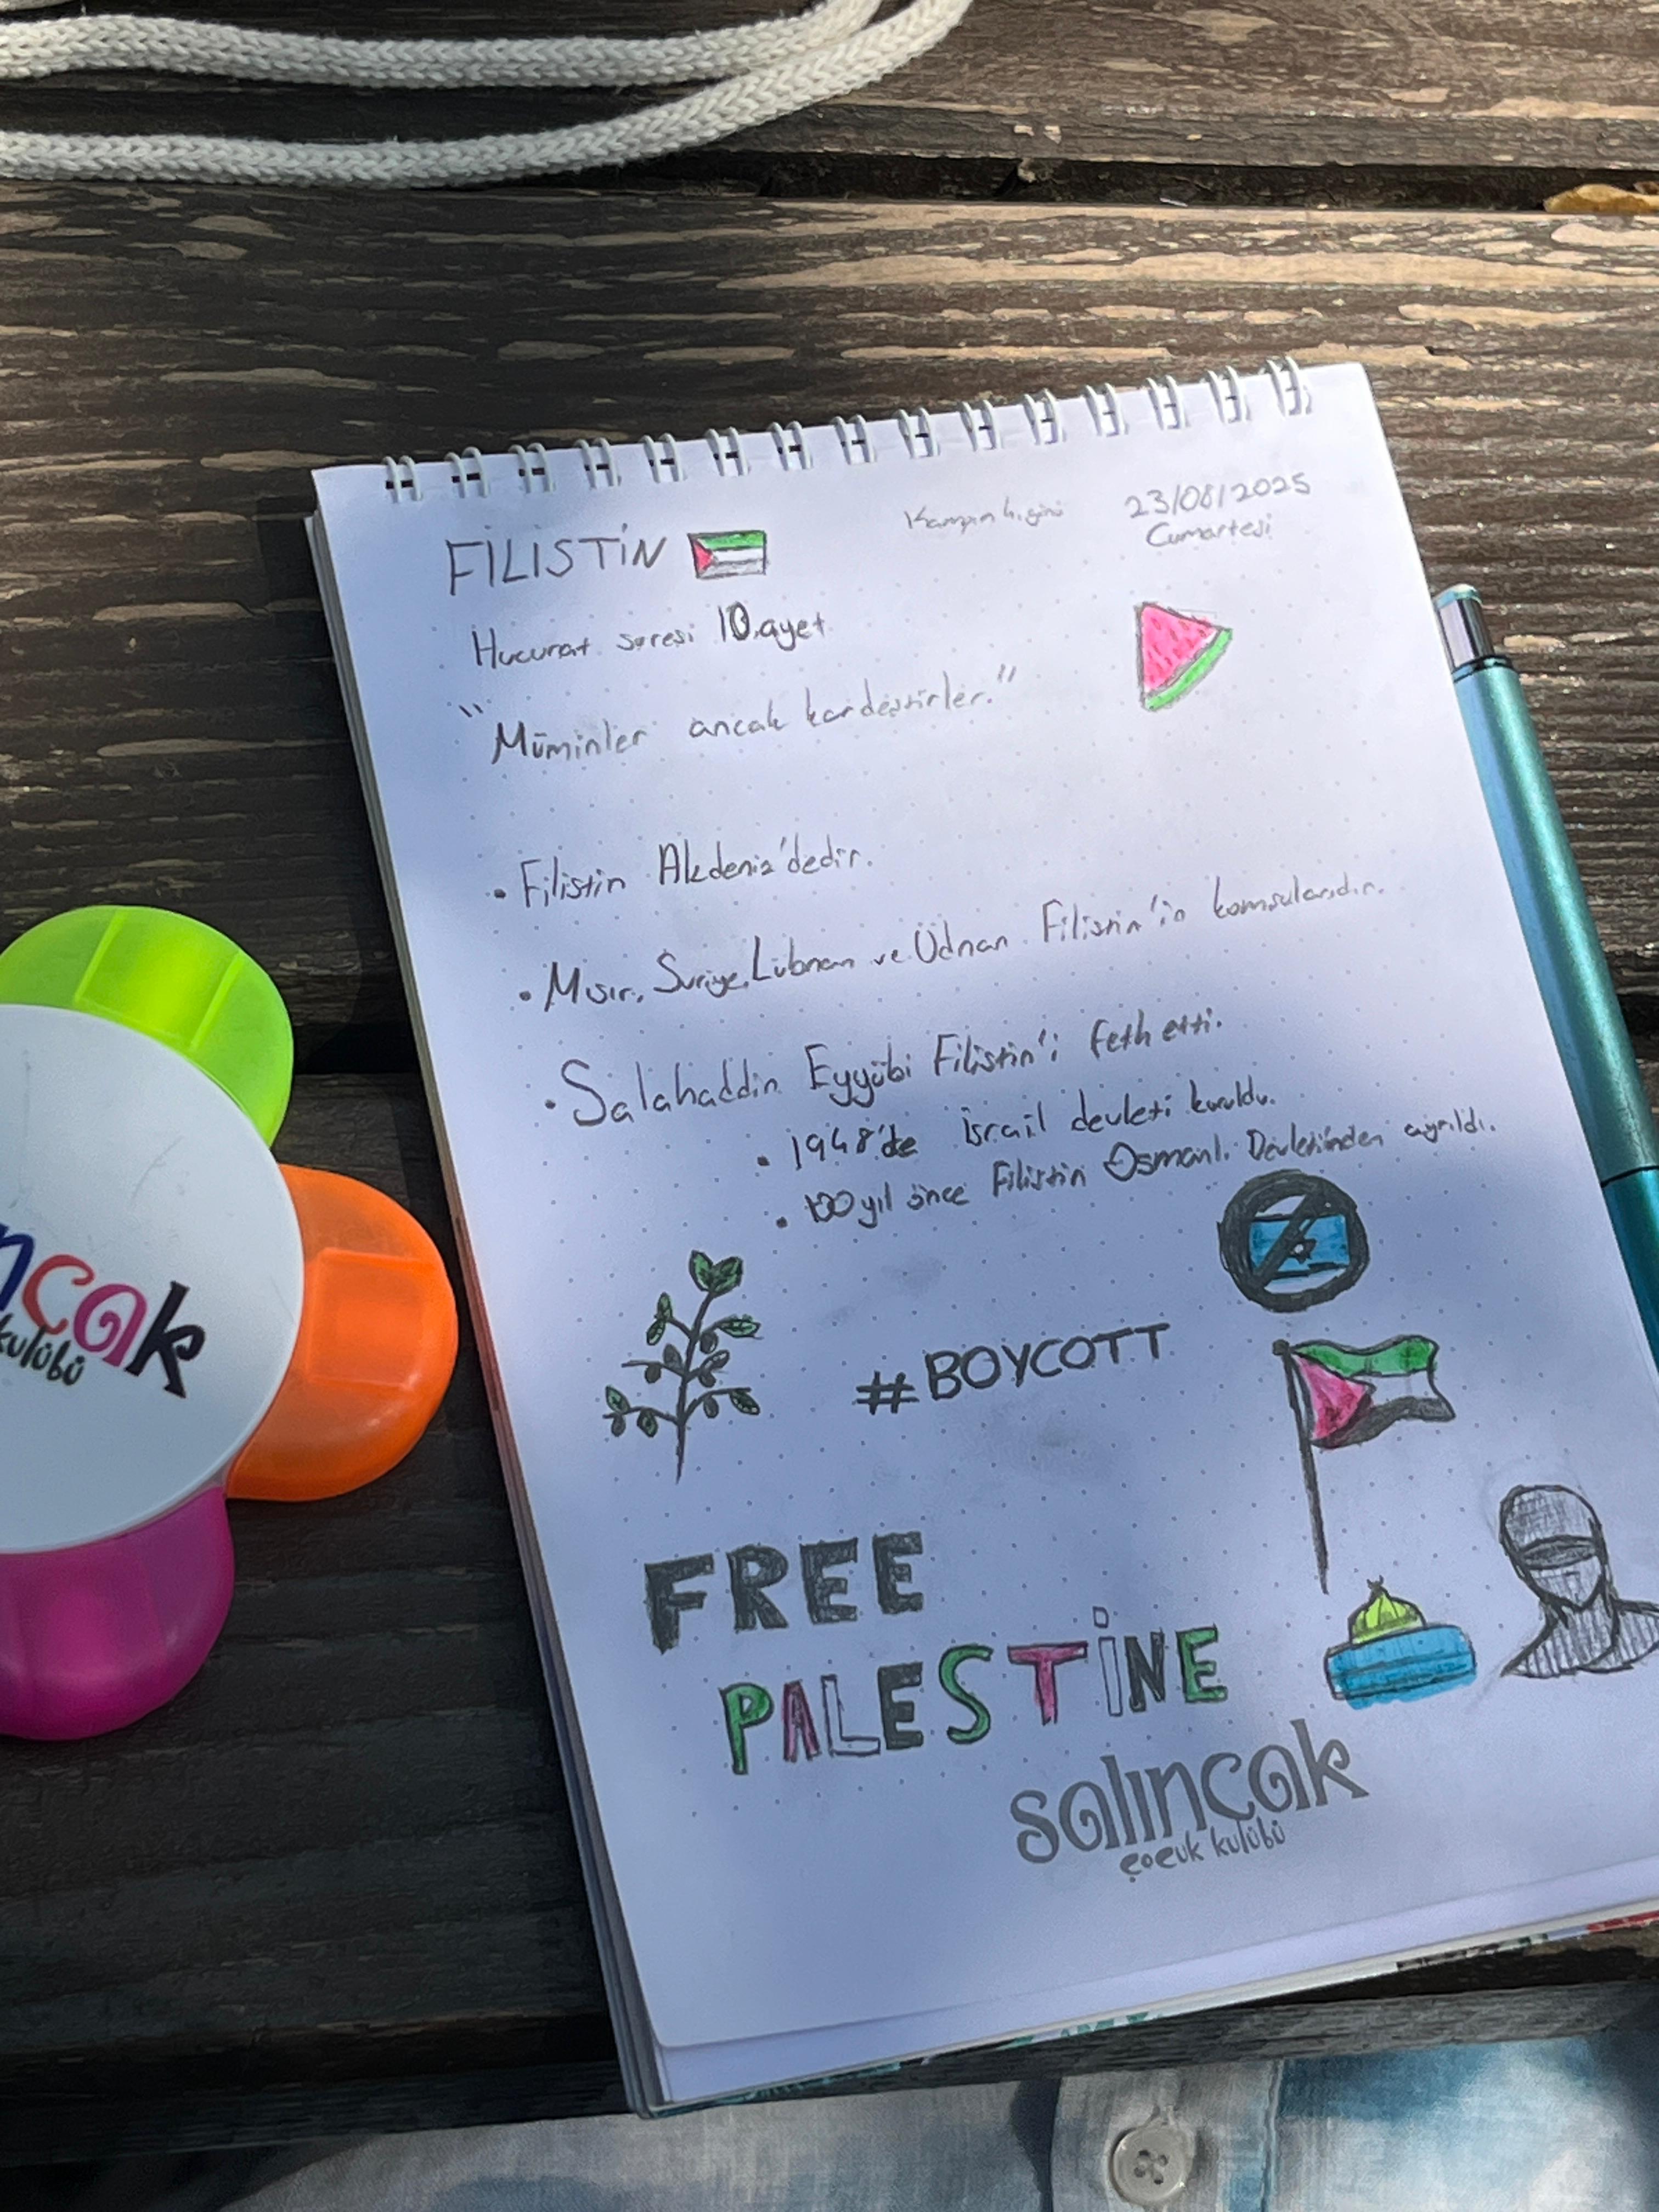 Kampın 4. günü
23/08/2025
Cumartesi
FİLİSTİN
Hucurat suresi 10.ayet
"Müminler ancak kardeştirler."
• Filistin Akdeniz'dedir.
• Mısır, Suriye, Lübnan ve Ürdnan Filistin'in komsularıdır.
• Salahaddin Eyyübi Filistin'i feth etti.
• 1948'de İsrail devleti kuruldu.
• 100 yıl önce Filistin Osmanlı Devleti'nden ayrıldı.
#BOYCOTT
FREE
PALESTİNE
salıncak
çocuk kulübü
ncak
kulübü